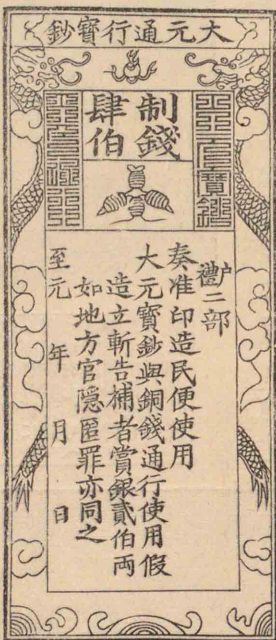 大元通行寶鈔
制錢
肆伯
户禮二部
奏准印造民便使用
大元寶鈔與銅錢通行使用假
造立斬告補者賞銀貳伯両
如地方官隠匿罪亦同之
至元 年 月 日